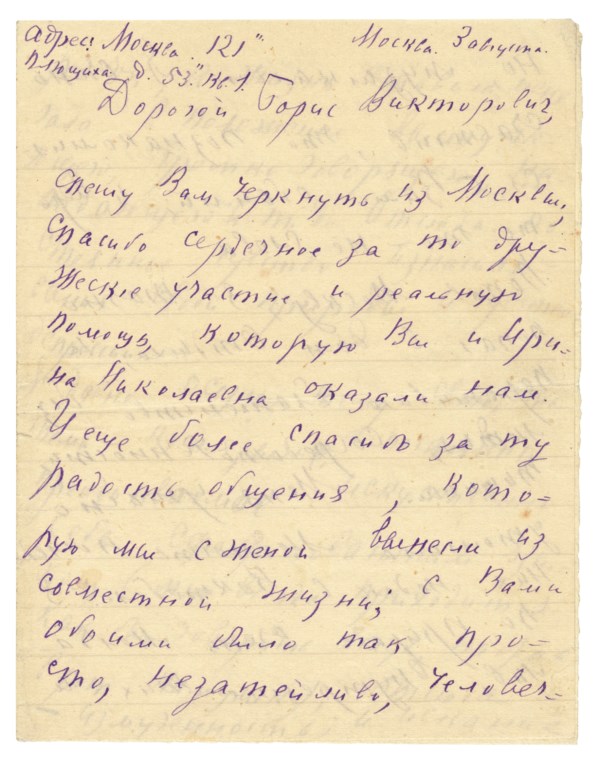 Адрес: Москва. 121"
Плющиха. д. 53". кв. 1.
Москва.
Дорогой Борис Викторович,
спешу Вам черкнуть из Москвы,
Спасибо сердечное за то дру-
жеское участие и реальную
помощь, которую Вы и Ири-
на Николаевна оказали нам.
И еще более спасибо за ту
радость общения, кото-
рую мы с женой вынесли из
совместной жизни; с Вами
обоими было так про-
сто, незатейливо, человеч-